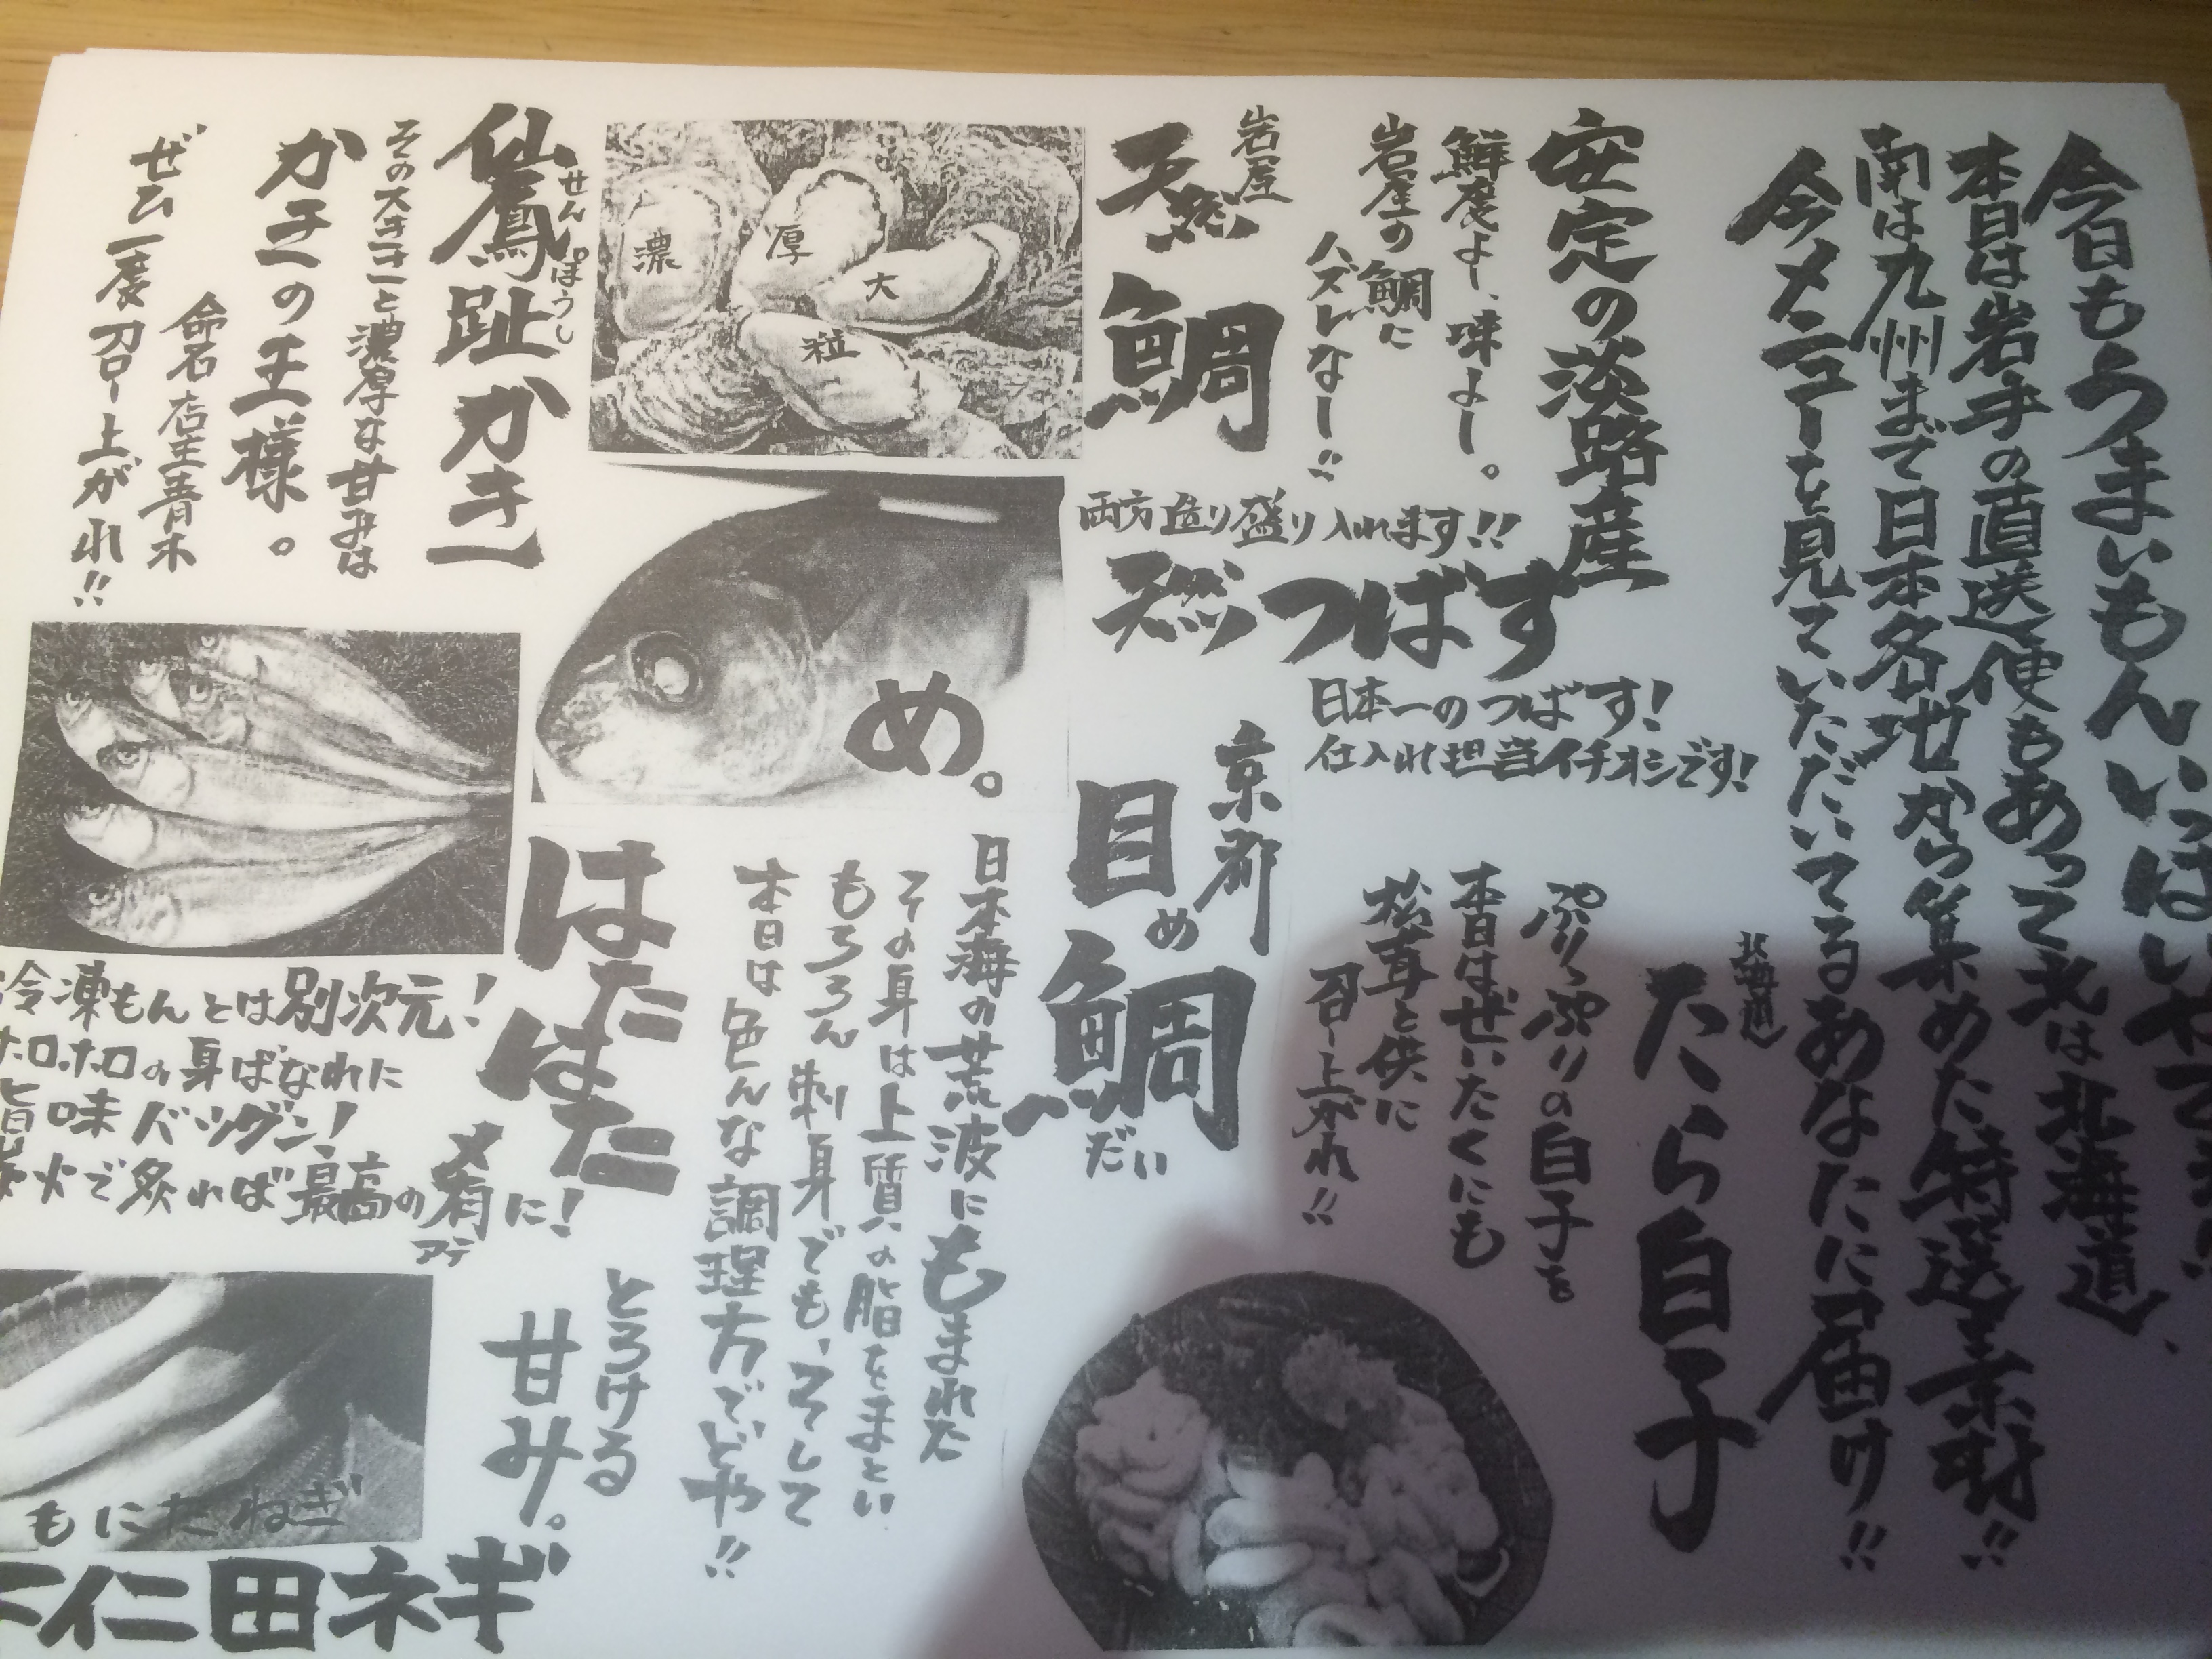 今日もうまいもんいっぱい
本日は岩手の直送便もあって北は北海道、
南は九州まで日本各地から集めた特選素材!!
今メニューを見ていただいてるあなたに届け!!
安定の淡路産
鮮度よし、味よし。
岩屋の鯛に
ハズレなし!!
岩屋
天然鯛
両方造り盛り入れます!!
天然つばす
日本一のつばす!
仕入れ担当イチオシです!
北海道
たら白子
ぷりっぷりの白子を
本日はぜいたくにも
松茸と供に
召し上がれ!!
京都
目鯛
め
だい
日本海の荒波にもまれた
その身は上質の脂をまとい
もちろん刺身でも、そして
本日は色んな調理方でどや!!
濃
厚
大
粒
め。
仙鳳趾かき
せんぽうし
その大きさと濃厚な甘みは
かきの王様。
命名 店主青木
ぜひ一度召し上がれ!!
はたはた
冷凍もんとは別次元!
ホロホロの身ばなれに
旨味バツグン!
炭火で炙れば最高の肴に!
アテ
とろける
甘み。
もにたねぎ
下仁田ネギ